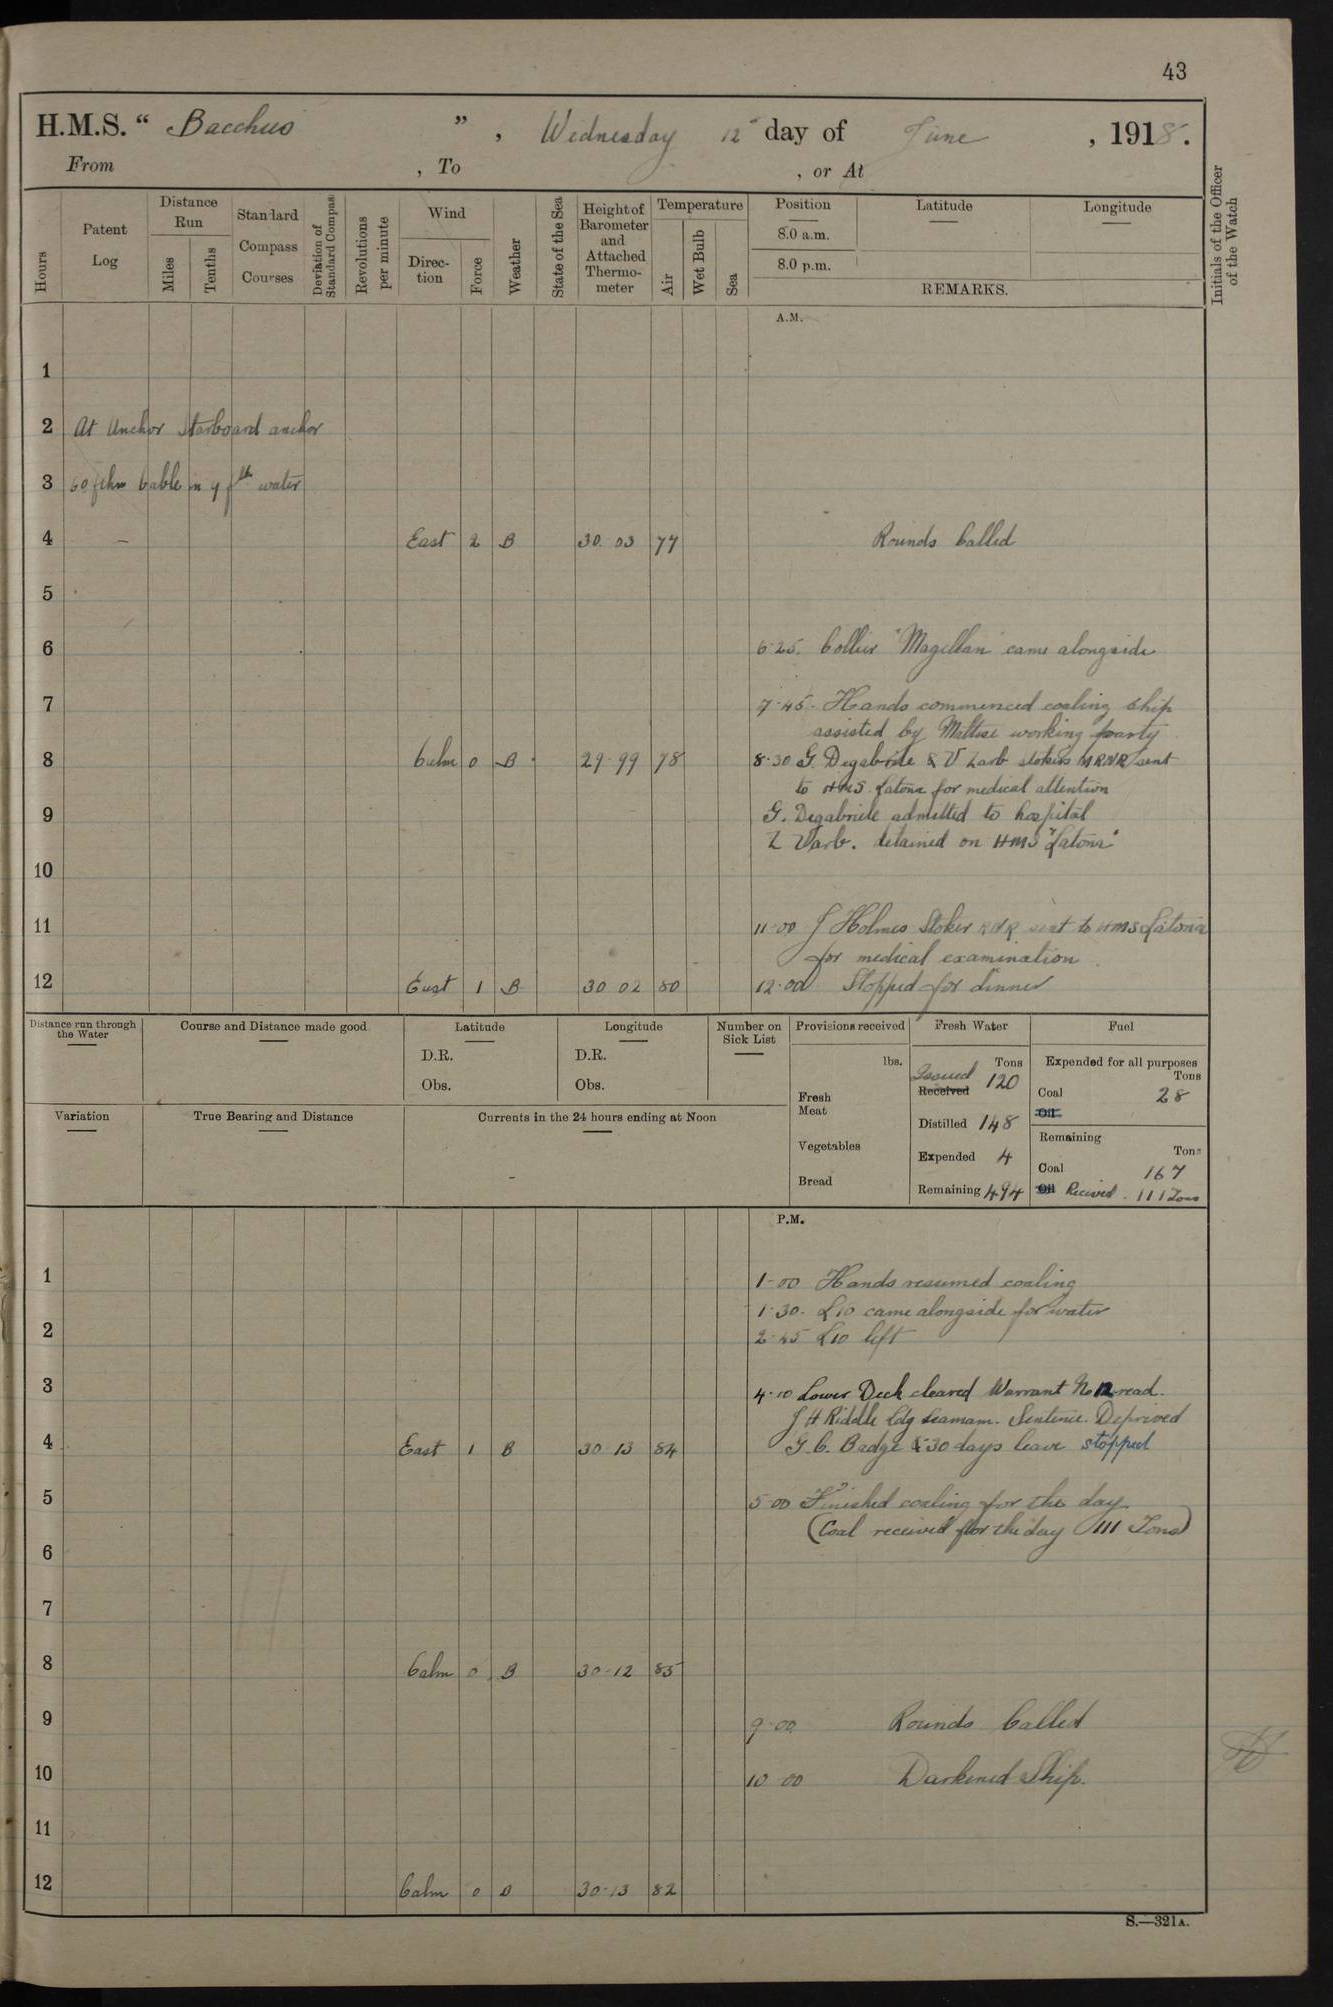 43
H.M.S. " Bacchus ", Wednesday 12th day of June, 1918.
From , To , or At
Hours
Patent Log
Distance Run
Miles
Tenths
Standard Compass Courses
Deviation of Standard Compass
Revolutions per minute
Wind
Direction
Force
Weather
State of the Sea
Height of Barometer and Attached Thermometer
Temperature
Air
Wet Bulb
Sea
Position
8.0 a.m.
8.0 p.m.
Latitude
Longitude
REMARKS.
Initials of the Officer of the Watch
A.M.
1
2 At Anchor Starboard anchor
3 60 fthms Cable in 7 fth water
4 East 2 B 30.03 77 Rounds Called
5
6 6.25. Collier "Magellan" came alongside
7 7.45. Hands commenced coaling ship
assisted by Maltese working party
8 Calm 0 B 29.99 78 8.30 G. Degabriele & V Zarb stokers MRNR sent
to HMS Latona for medical attention
9 G. Degabriele admitted to hospital
Z Varb. detained on HMS "Latona"
10
11 11.00 J Holmes Stoker RNR sent to HMS Latona
for medical examination.
12 East 1 B 30 02 80 12.00 Stopped for dinner
Distance run through the Water
Course and Distance made good
Latitude
D.R.
Obs.
Longitude
D.R.
Obs.
Number on Sick List
Provisions received
lbs.
Fresh Meat
Vegetables
Bread
Fresh Water
Tons
Issued
Received 120
Distilled 148
Expended 4
Remaining 494
Fuel
Expended for all purposes
Tons
Coal 28
Oil
Remaining
Tons
Coal 167
Oil Received. 111 Tons
Variation
True Bearing and Distance
Currents in the 24 hours ending at Noon
P.M.
1 1.00 Hands resumed coaling
1.30. L10 came alongside for water
2 2.45 L10 left
3 4.10 Lower Deck cleared Warrant No 12 read.
J H Riddle Ldg Seamam. Sentence. Deprived
4 East 1 B 30.13 84 G.C. Badge & 30 days leave stopped
5 5.00 Finished coaling for the day.
(Coal received for the day 111 Tons)
6
7
8 Calm 0 B 30.12 85
9 9.00 Rounds Called
10 10 00 Darkened Ship.
11
12 Calm 0 B 30.13 82
S.—321A.